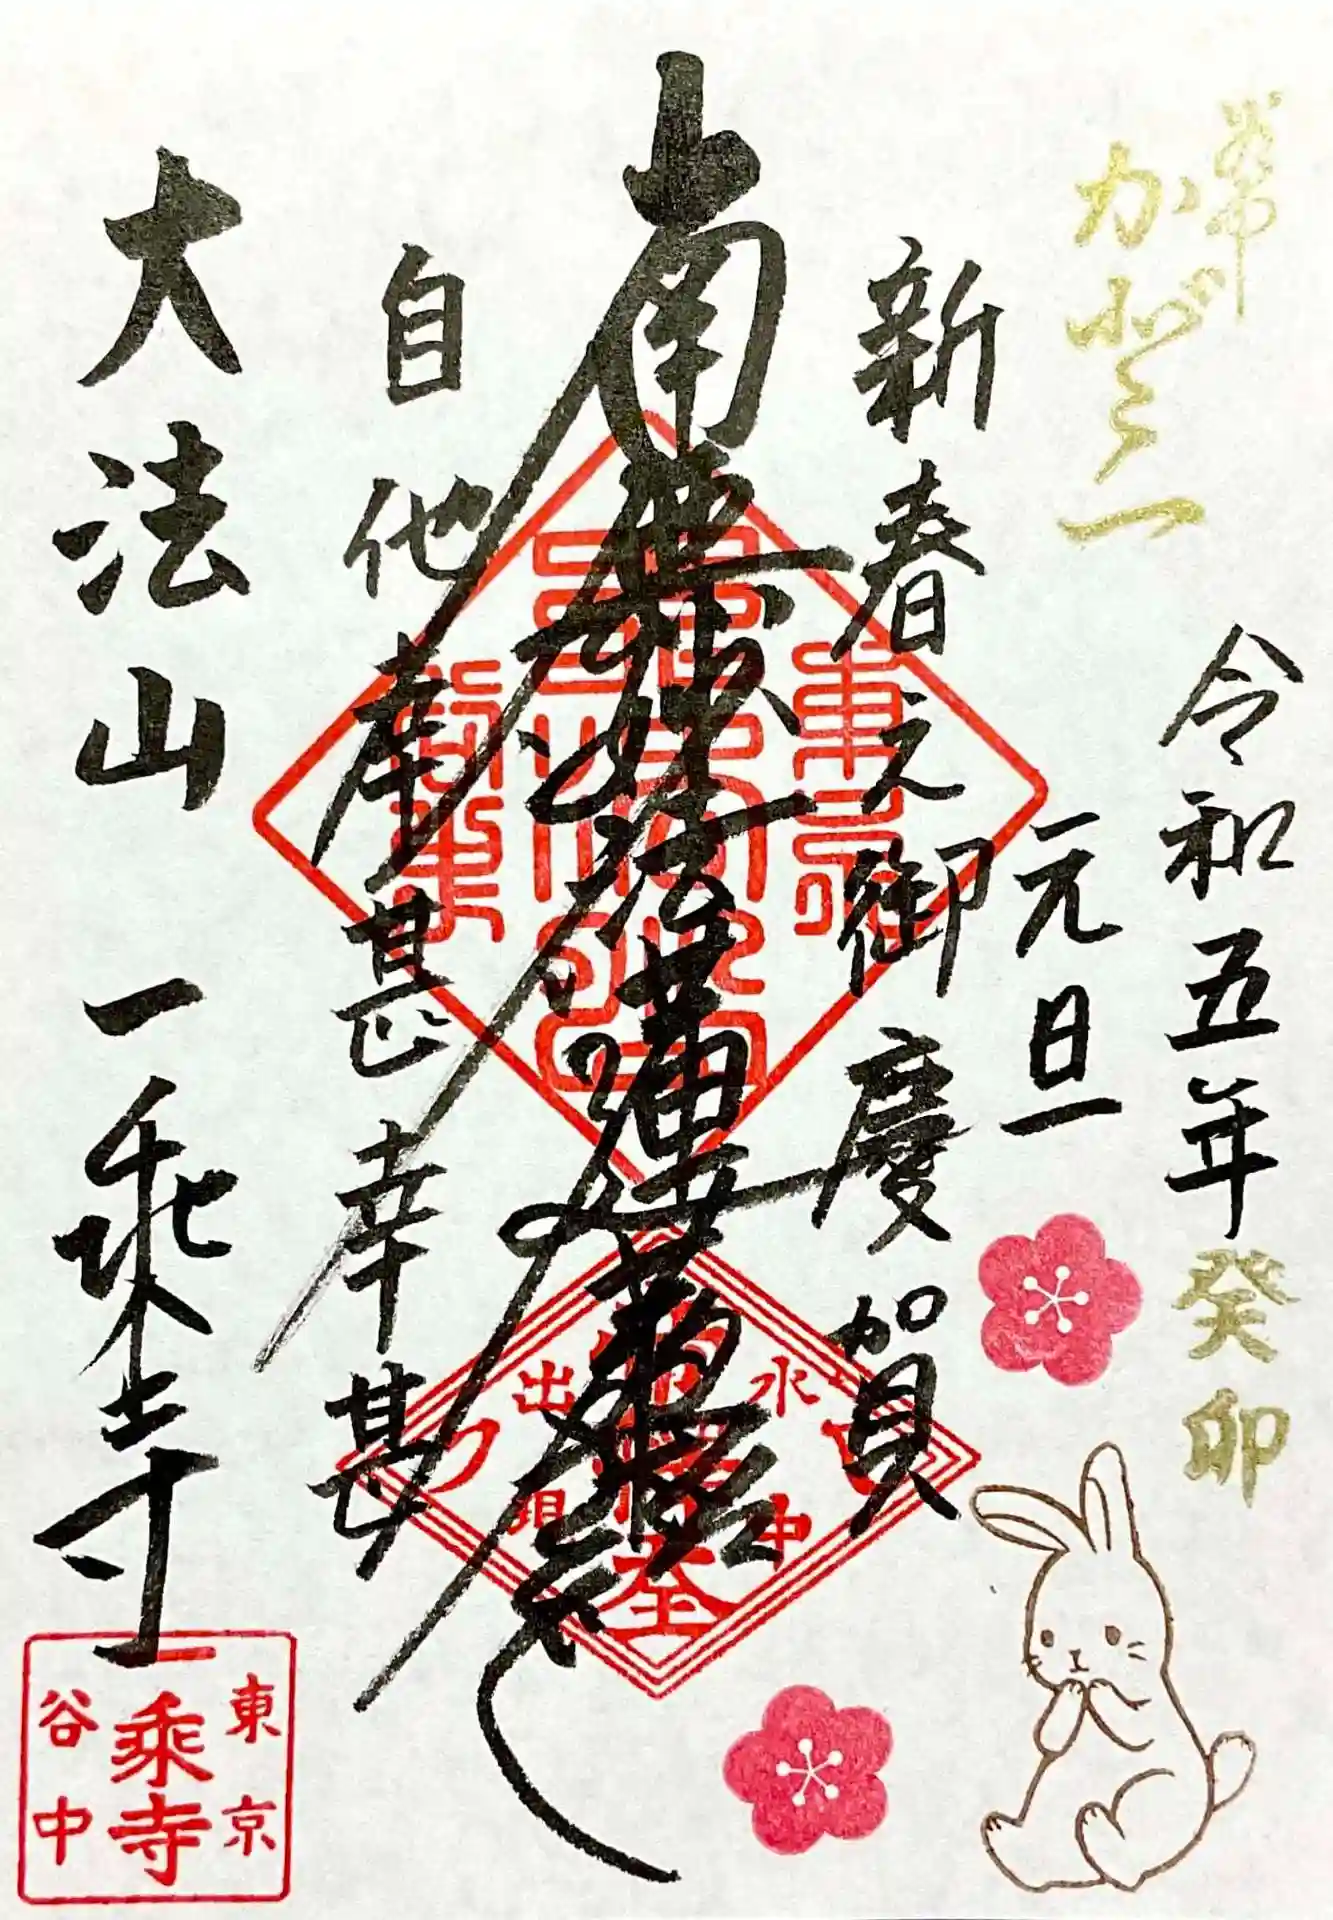 令和五年 癸卯
元旦
新春之御慶賀
南無妙法蓮華経
自他幸甚幸甚
大法山一乗寺
水中
出現
東京
一乘寺
谷中